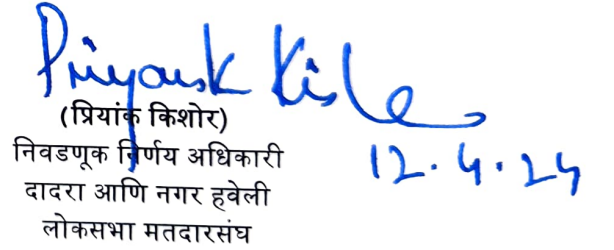 Priyank Kishore
(प्रियांक किशोर)
12.4.24
निवडणूक निर्णय अधिकारी
दादरा आणि नगर हवेली
लोकसभा मतदारसंघ